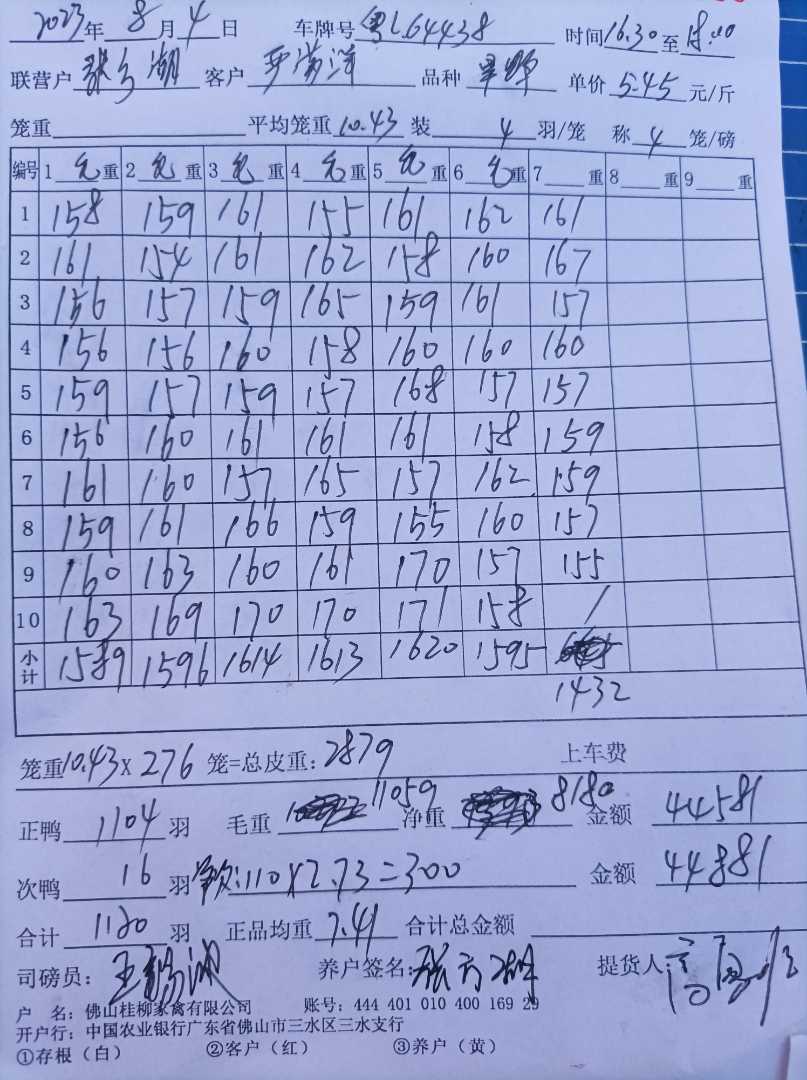 2023年 8月 4日 车牌号 粤L64438 时间16.30至18:00
联营户 客户 品种 单价 5.45 元/斤
笼重 平均笼重10.43 装 4 羽/笼 称 4 笼/磅
编号 1 毛重 2 毛重 3 毛重 4 毛重 5 毛重 6 毛重 7 重 8 重 9 重
1 158 159 161 155 161 162 161
2 161 154 161 162 158 160 167
3 156 157 159 165 159 161 157
4 156 156 160 158 160 160 160
5 159 157 159 157 168 157 157
6 156 160 161 161 161 158 159
7 161 160 157 165 157 162 159
8 159 161 166 159 155 160 157
9 160 163 160 161 170 157 155
10 163 169 170 170 171 158 /
小计 1589 1596 1614 1613 1620 1595
1432
笼重10.43X 276 笼=总皮重: 2879 上车费
正鸭 1104 羽 毛重 11059 净重 8180 金额 44581
次鸭 16 羽 :110X2.73=300 金额 44881
合计 1120 羽 正品均重 7.41 合计总金额
司磅员: 王 养户签名: 张 提货人:
户 名: 佛山桂柳家禽有限公司 账号: 444 401 010 400 169 29
开户行: 中国农业银行广东省佛山市三水区三水支行
①存根(白) ②客户(红) ③养户(黄)